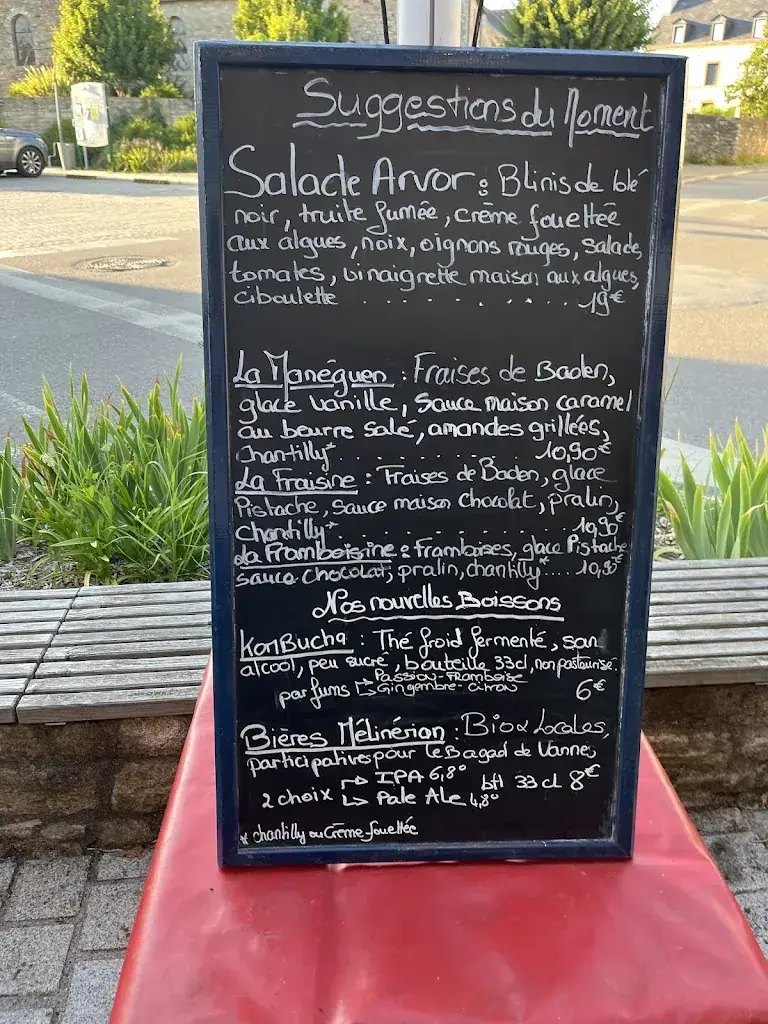 Suggestions du Moment
Salade Arvor : Blinis de blé
noir, truite fumée, crème fouettée
aux algues, noix, oignons rouges, salade,
tomates, vinaigrette maison aux algues,
ciboulette . . . . . . . . 19€
La Manéguen : Fraises de Baden,
glace vanille, sauce maison caramel
au beurre salé, amandes grillées,
chantilly* . . . . . . . 10,90€
La Fraisine : Fraises de Baden, glace
Pistache, sauce maison chocolat, pralin,
chantilly* . . . . . . . . 10,90€
La Framboisine : Framboises, glace Pistache
sauce chocolat, pralin, chantilly*.... 10,90€
Nos nouvelles Boissons
KomBucha : Thé froid fermenté, san
alcool, peu sucré, bouteille 33cl, non pasteurisé.
Passion-Framboise
parfums Gingembre-citron 6€
Bières Mélinérion : Bio & Locales,
participatives pour le Bagad de Vannes
IPA 6,8°
2 choix btl 33 cl 8€
Pale Ale 4,8°
* chantilly ou Crème fouettée